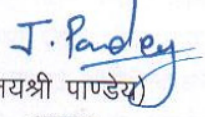 J. Pandey
यश्री पाण्डेय)